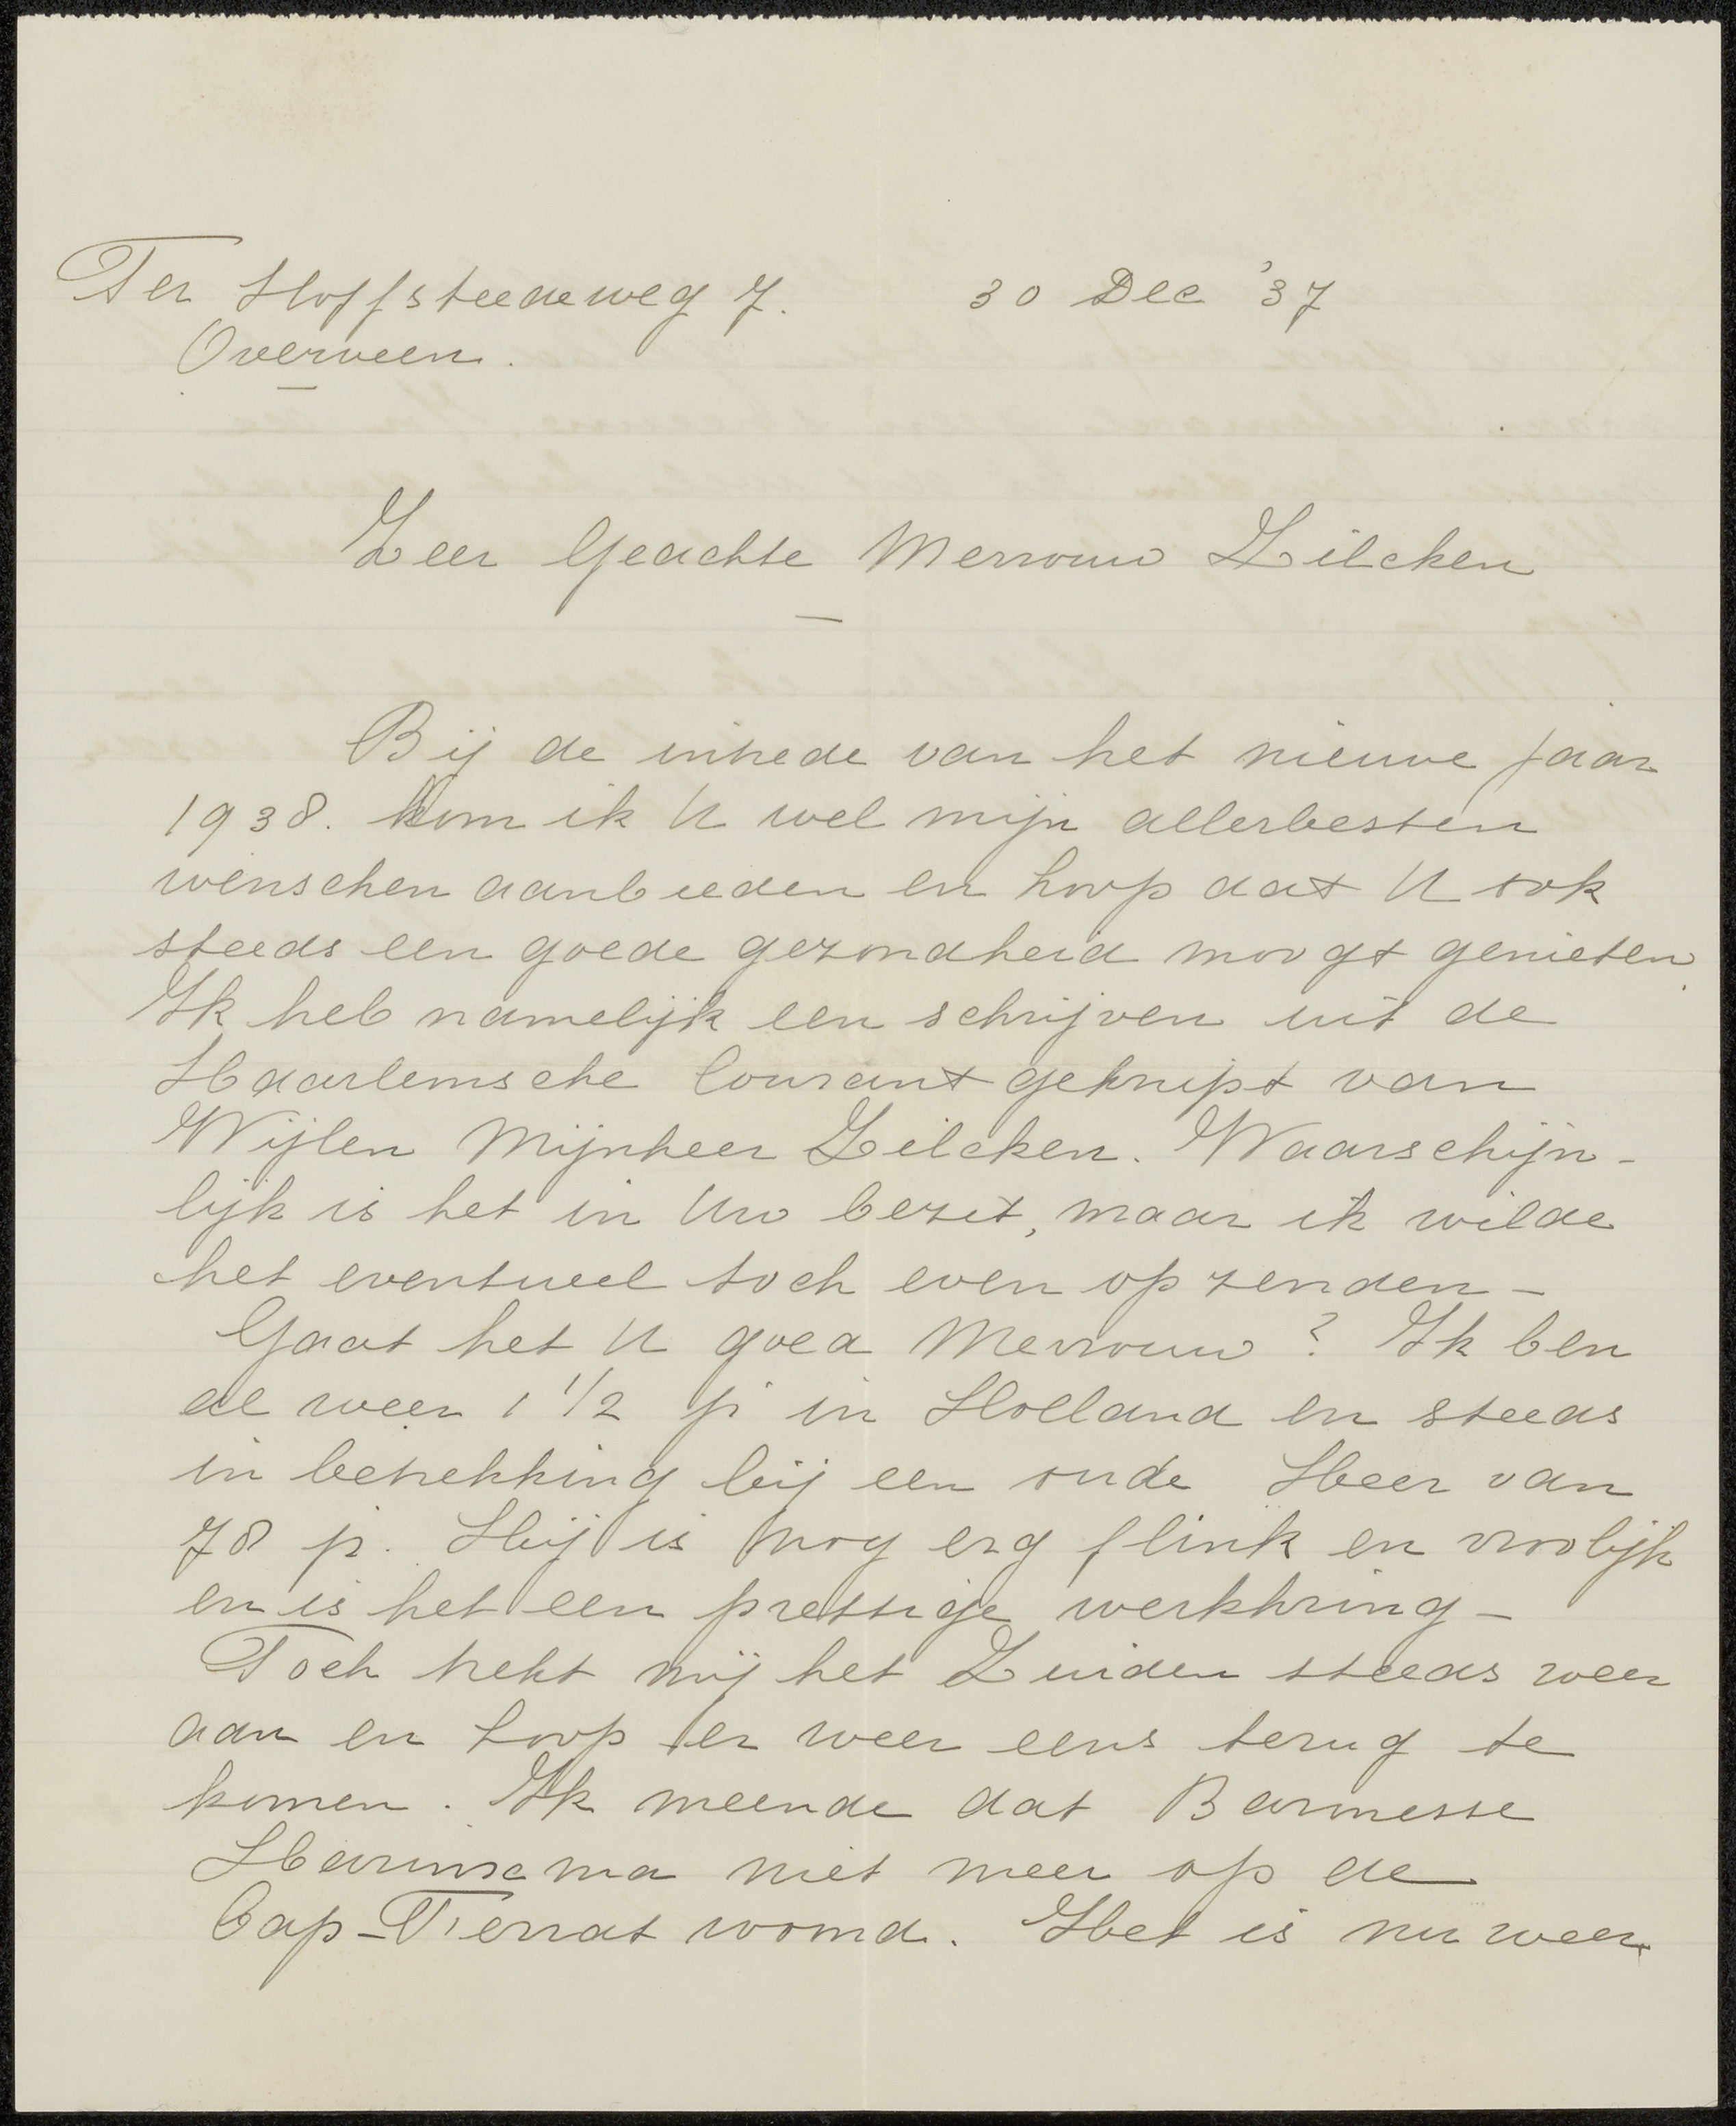 Ter Hoffsteedeweg 7. 30 Dec '37
Overveen.
Zeer Geachte Mevrouw Zilcken
Bij de intrede van het nieuwe jaar
1938. kom ik U wel mijn allerbesten
wenschen aanbieden en hoop dat U ook
steeds een goede gezondheid moogt genieten.
Ik heb namelijk een schrijven uit de
Haarlemsche Courant geknipt van
Wijlen Mijnheer Zilcken. Waarschijn-
lijk is het in Uw bezit, maar ik wilde
het eventueel toch even op zenden -
Gaat het U goed Mevrouw? Ik ben
al weer 1 1/2 jr in Holland en steeds
in betrekking bij een oude Heer van
78 jr. Hij is nog erg flink en vroolijk
en is het een prettige werkkring -
Toch trekt mij het Zuiden steeds weer
aan en hoop er weer eens terug te
komen. Ik meende dat Baronesse
Harinxma niet meer op de
Cap-Ferrat woond. Het is nu weer